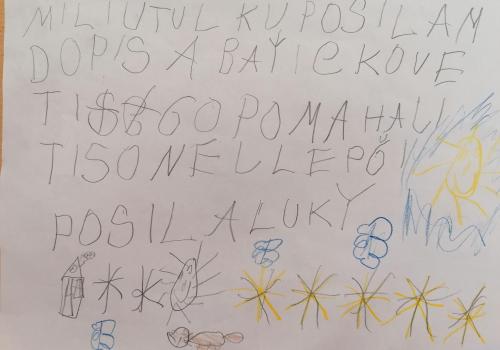 MILIUTUL KU POSILAM
DOPIS A BAŤICKOVE
TI GO POMAHALI
TISONELLEPŠI
POSIL ALUKY